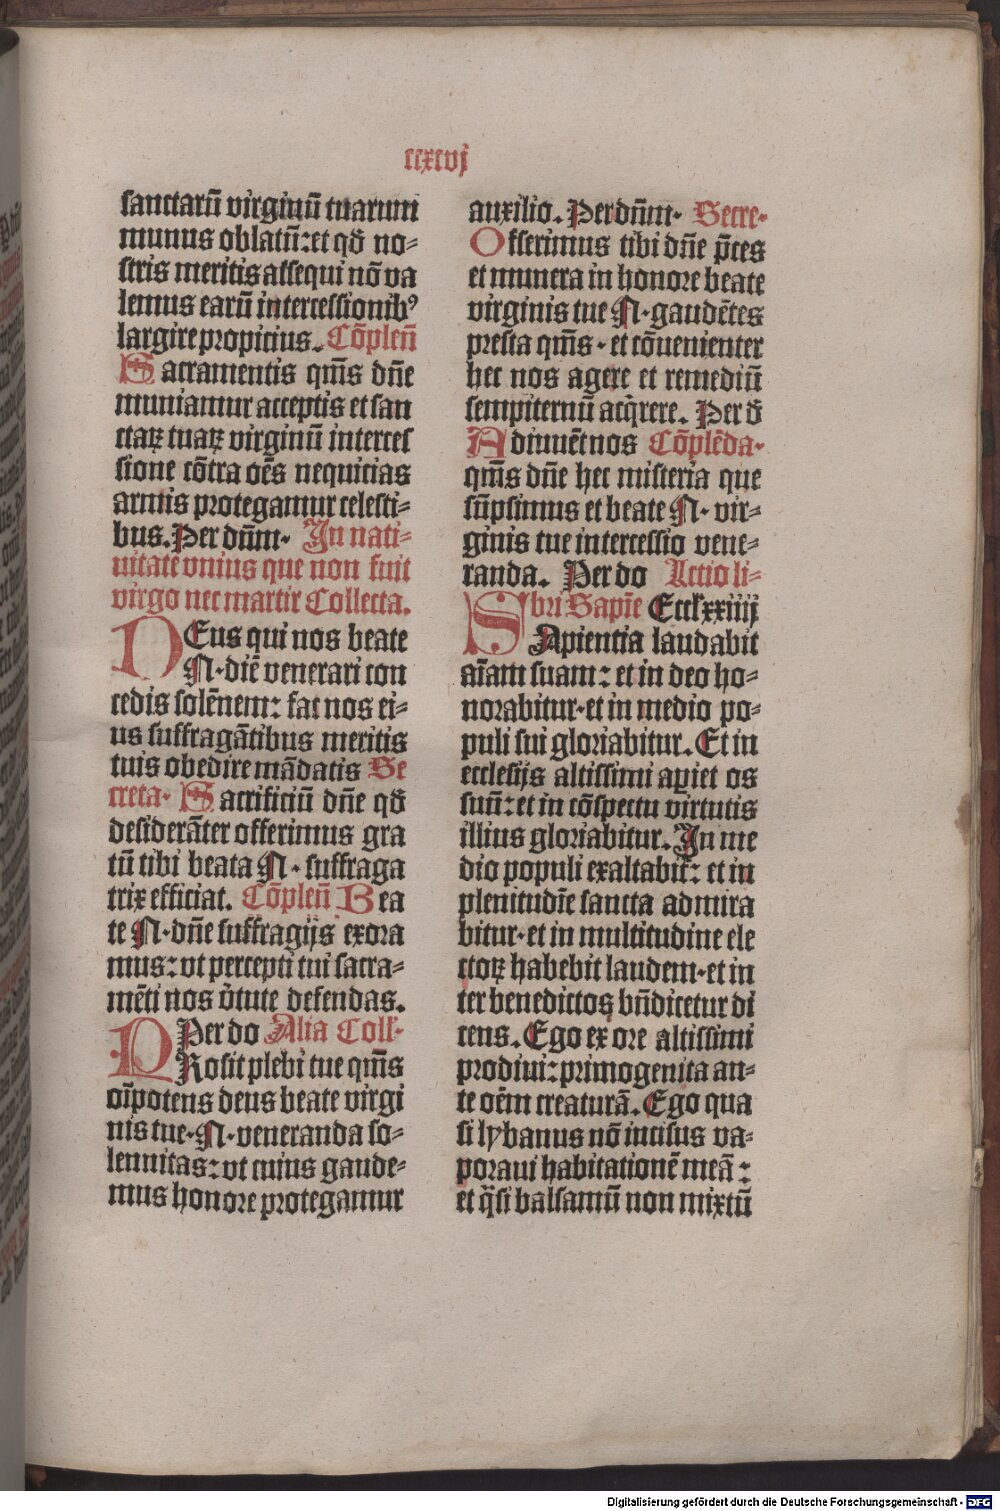 ccxcvj
sanctarū virginū tuarum
munus oblatū: et qd̄ no⸗
stris meritis assequi nō va
lemus earū intercessionibꝰ
largire propicius. Cōplen̄
Sacramentis qm̄s dn̄e
muniamur acceptis et san
ctaꝝ tuaꝝ virginū interces
sione cōtra oēs nequicias
armis protegamur celesti⸗
bus. Per dn̄m· In nati⸗
uitate vnius que non fuit
virgo nec martir Collecta.
DEus qui nos beate
N· diē venerari con
cedis solēnem: fac nos ei⸗
us suffragātibus meritis
tuis obedire mādatis Se
creta· Sacrificiū dn̄e qd̄
desiderāter offerimus gra
tū tibi beata N· suffraga
trix efficiat. Cōplen̄ Bea
te N· dn̄e suffragijs exora
mus: vt percepti tui sacra⸗
mēti nos v̄tute defendas.
Per do Alia Coll·
PRosit plebi tue qm̄s
oīpotens deus beate virgi
nis tue· N· veneranda so⸗
lennitas: vt cuius gaude⸗
mus honore protegamur
auxilio. Per dn̄m· Secre·
Offerimus tibi dn̄e p̄ces
et munera in honore beate
virginis tue N· gaudētes
presta qm̄s· et cōuenienter
hec nos agere et remediū
sempiternū acq̄rere. Per d̄
Adiuuēt nos Cōplēda·
qm̄s dn̄e hec misteria que
sūpsimus et beate N· vir⸗
ginis tue intercessio vene⸗
randa. Per do Lectio li⸗
bri Sapīe Eccl xxiiij
SApientia laudabit
aīam suam: et in deo ho⸗
norabitur· et in medio po⸗
puli sui gloriabitur. Et in
ecclesijs altissimi apiet os
suū: et in cōspectu virtutis
illius gloriabitur. In me
dio populi exaltabit̄: et in
plenitudīe sancta admira
bitur· et in multitudine ele
ctoꝝ habebit laudem· et in
ter benedictos bn̄dicetur di
cens. Ego ex ore altissimi
prodiui: primogenita an⸗
te oēm creaturā. Ego qua
si lybanus nō incisus va⸗
poraui habitationē meā:
et q̄si balsamū non mixtū
Digitalisierung gefördert durch die Deutsche Forschungsgemeinschaft - DFG